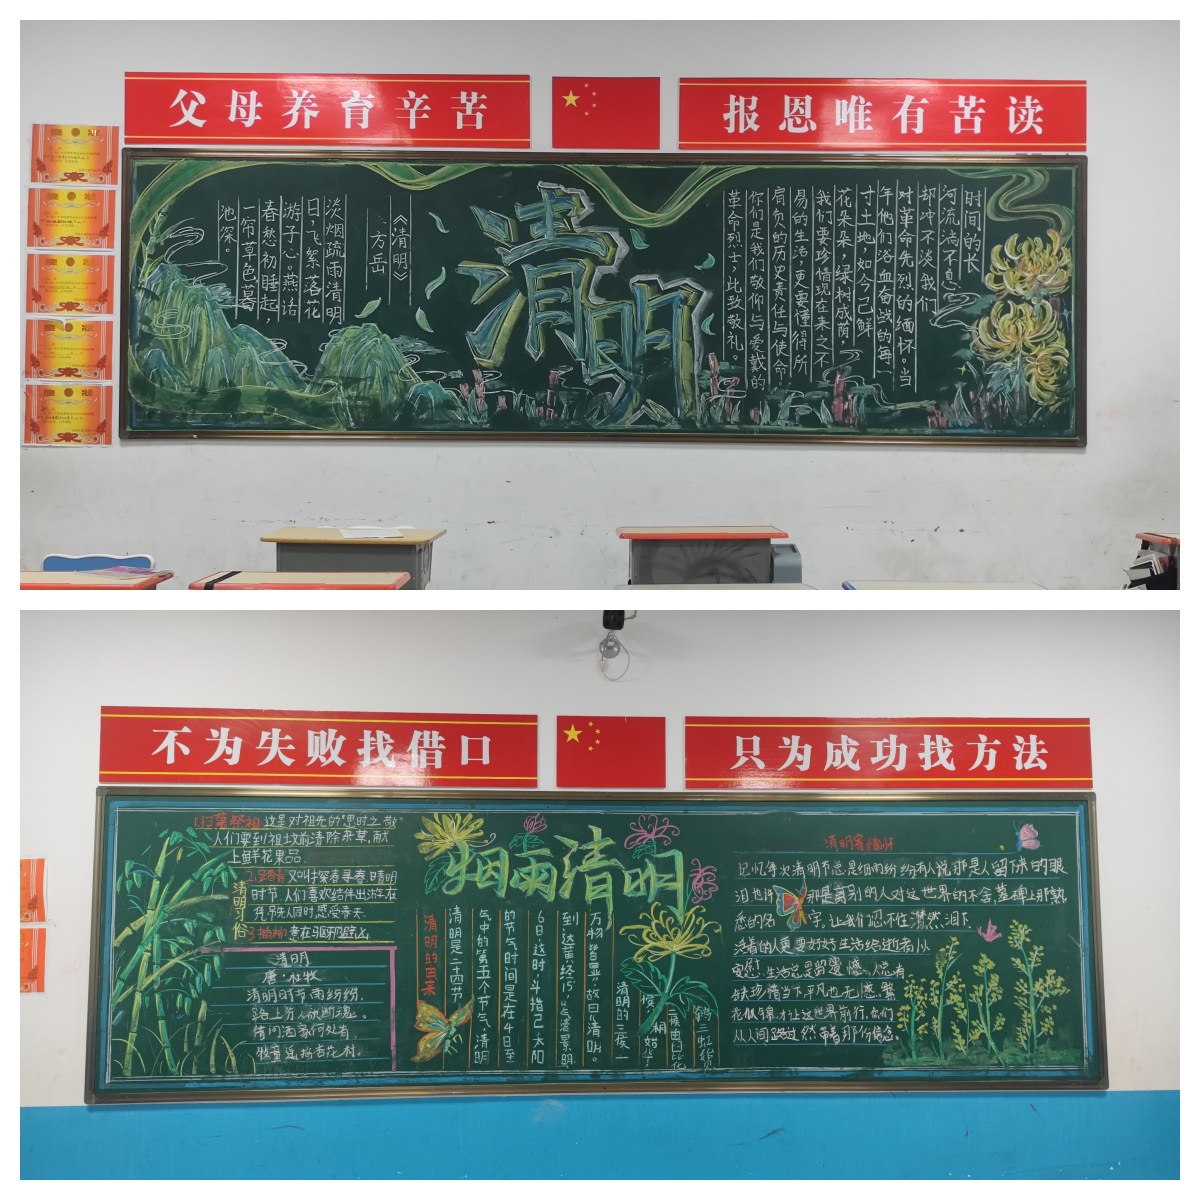 父母养育辛苦
报恩唯有苦读
时间的长
河流淌不息
却冲不淡我们
对革命先烈的缅怀。当
年他们浴血奋战的每一
寸土地,如今已鲜
花朵朵,绿树成荫,
我们要珍惜现在来之不
易的生活,更要懂得所
肩负的历史责任与使命
你们是我们敬仰与爱戴的
革命烈士,此致敬礼。
清明
《清明》
方岳
淡烟疏雨清明
日,飞絮落花
游子心。燕话
春愁初睡起,
一帘草色暮
池深。
不为失败找借口
只为成功找方法
1.扫墓祭祖 这是对祖先的"思时之敬"
人们要到祖坟前清除杂草,献
上鲜花果品
2.踏青 又叫探春寻春晴明
时节人们喜欢结伴出游在
凭吊先人同时感受春天
3.插柳 意在驱邪避
清明习俗
清明
唐·杜牧
清明时节雨纷纷,
路上行人欲断魂。
借问酒家何处有,
牧童遥指杏花村。
烟雨清明
清明的由来
清明是二十四节
气中的第五个节气,清明
的节气时间是在4日至
6日这时斗指乙太阳
到达黄经15°气清景明
万物皆显,故曰清明。
清明的三候一
候桐始华
二候田
三虹始
清明寄
记忆年少清明节总是细雨纷纷有人说那是人留下来的眼
泪也许那是离别的人对这世界的不舍墓碑上那熟
悉的名字,让我们忍不住潸然泪下
活着的人更要好好生活给逝者以
安慰 生活总是留爱憾
珍惜当下平凡也无憾 繁
花似锦才让这世界前行
从人间路过 然带着那份信念